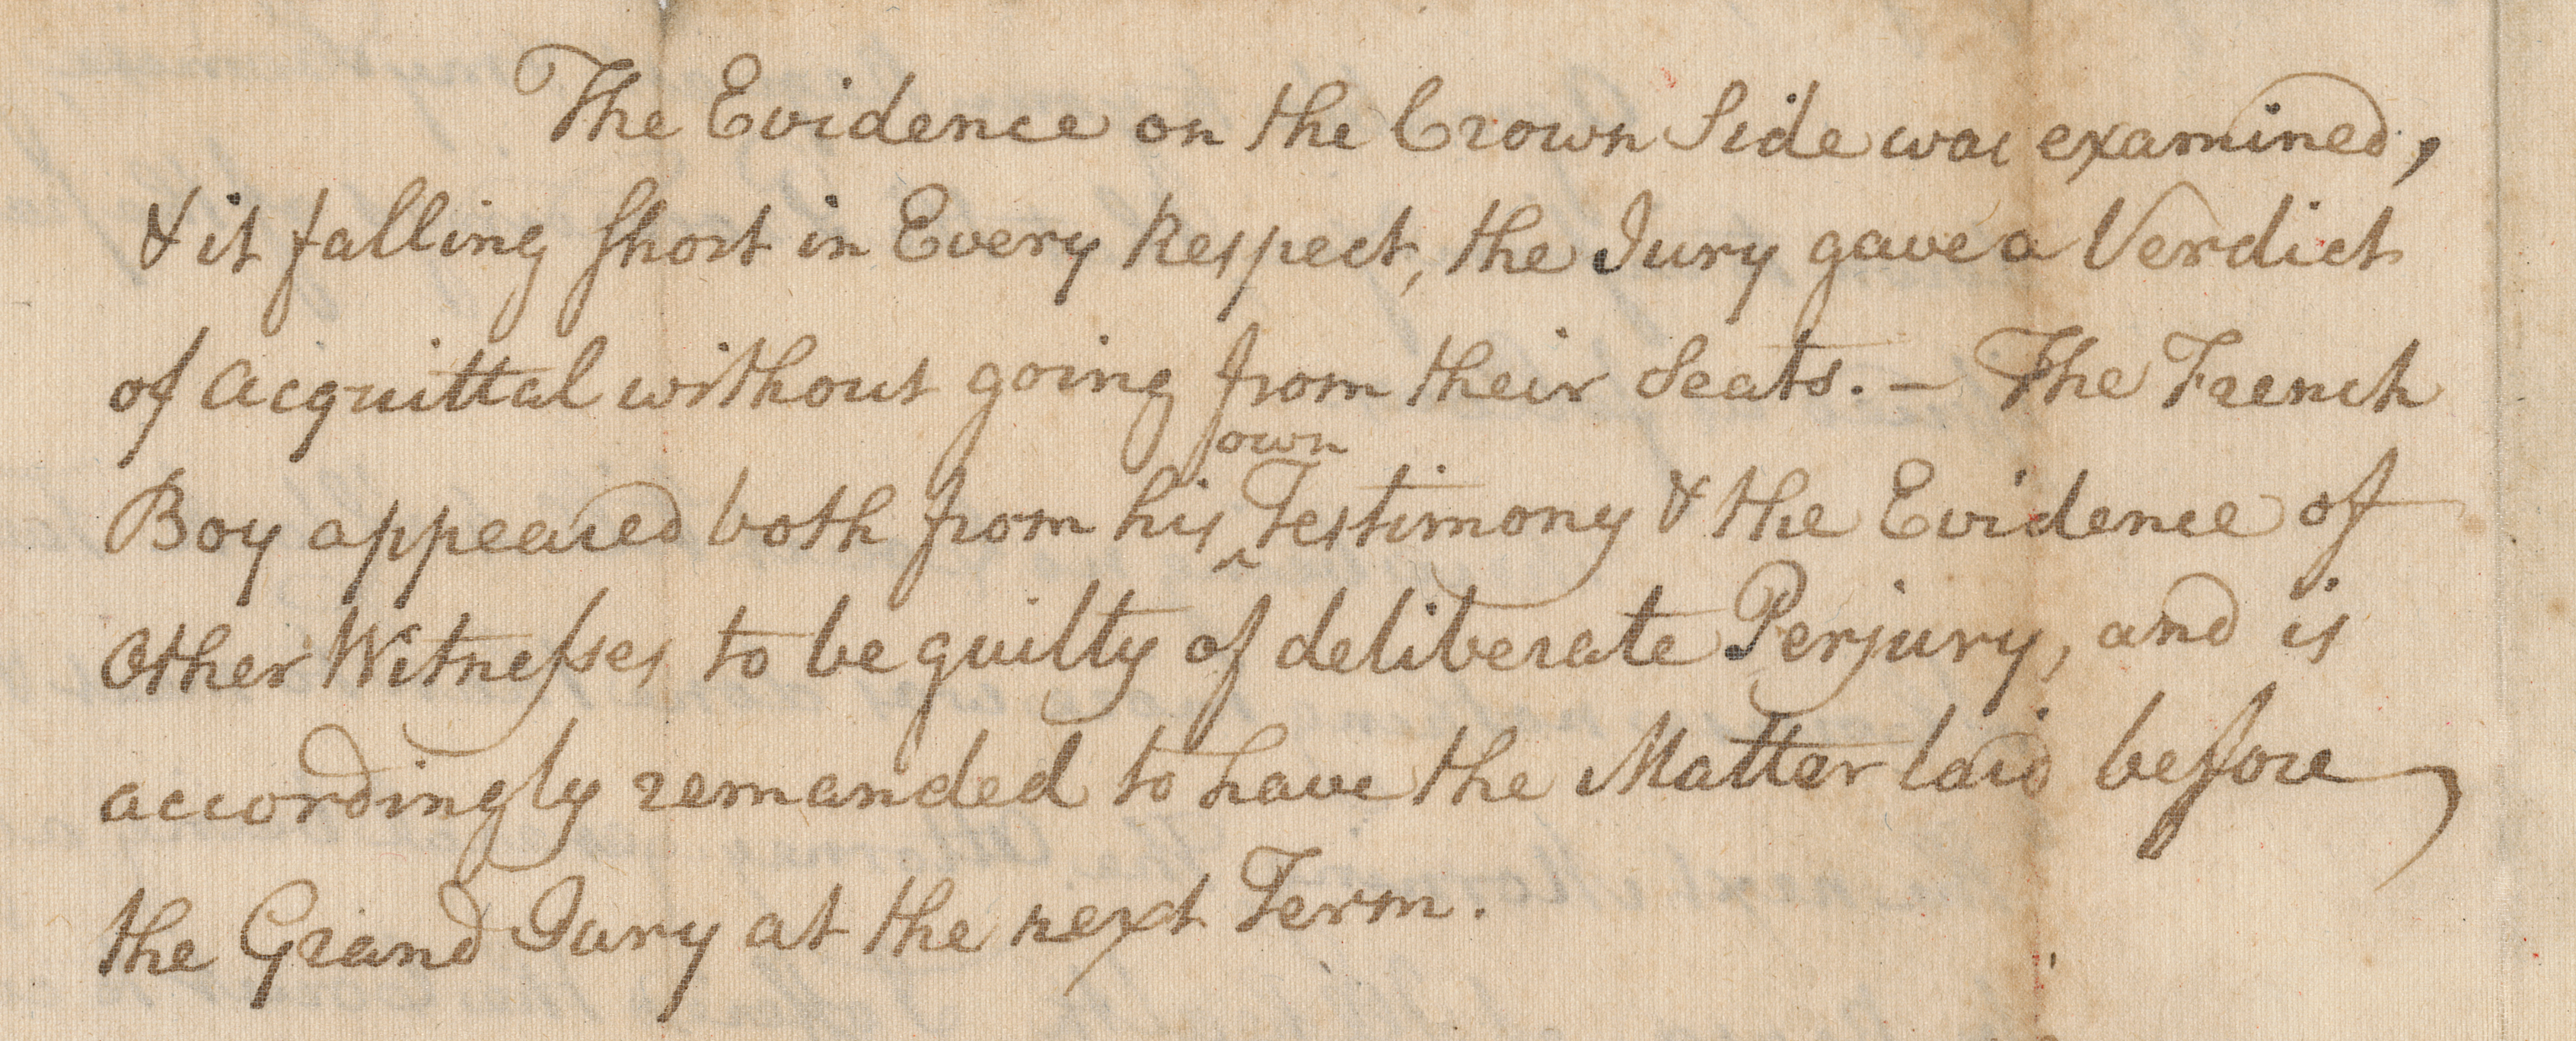 The Evidence on the Crown Side was examined,
& it falling short in Every Respect, the Jury gave a Verdict
of Acquittal without going from their Seats. – The French
own
Boy appeared both from his ^ Testimony & the Evidence of
Other Witnesses to be guilty of deliberate Perjury, and is
accordingly remanded to have the Matter laid before
the Grand Jury at the next Term.